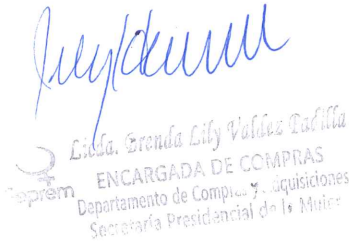 Licda. Brenda Lily Valdez Padilla
ENCARGADA DE COMPRAS
Departamento de Compras y Adquisiciones
Secretaría Presidencial de la Mujer
Seprem